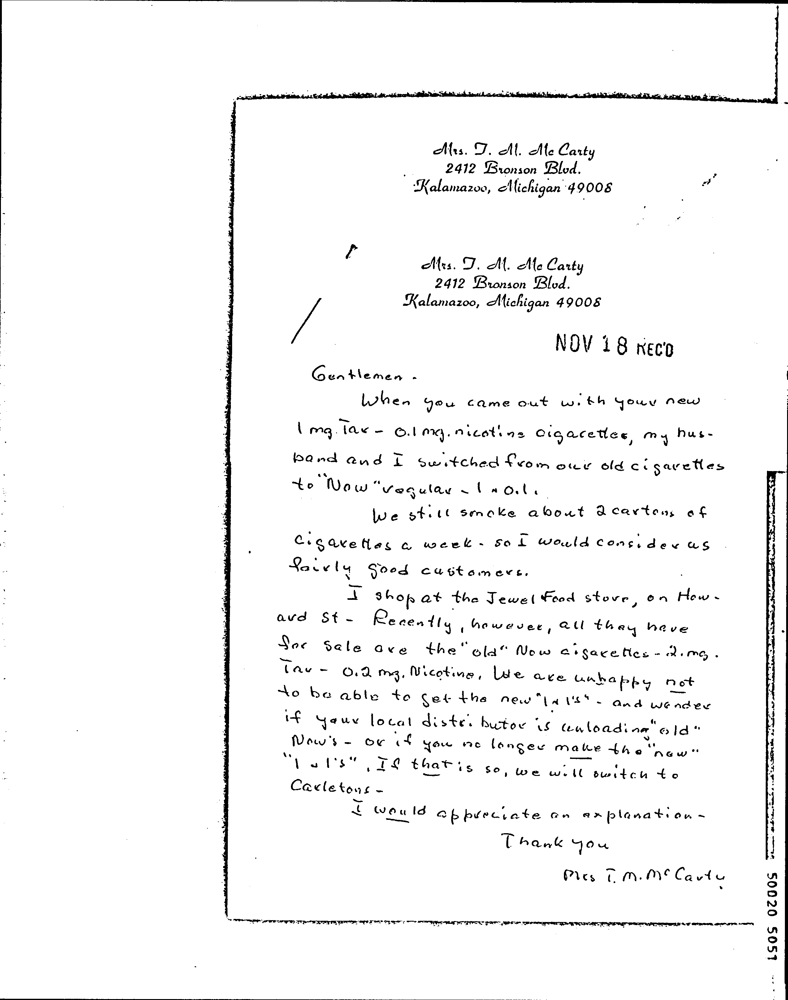 Mrs. T. M. Mc Carty
2412 Bronson Blvd.
Kalamazoo, Michigan 49008
Mrs. T. M. Mc Carty
2412 Bronson Blvd.
Kalamazoo, Michigan 49008
NOV 18 REC'D
Gentlemen -
When you came out with your new
1 mg. Tar - 0.1 mg. nicotine cigarettes, my hus-
band and I switched from our old cigarettes
to "Now" regular - 1 & 0.1.
We still smoke about 2 cartons of
cigarettes a week - so I would consider us
fairly good customers.
I shop at the Jewel Food store, on How-
ard St - Recently, however, all they have
for sale are the "old" Now cigarettes - 2. mg.
Tar - 0.2 mg. Nicotine. We are unhappy not
to be able to get the new "1 & 1's" - and wonder
if your local distributor is unloading "old"
Now's - or if you no longer make the "new"
"1 & 1's". If that is so, we will switch to
Carletons -
I would appreciate an explanation -
Thank you
Mrs T. M. McCarty
50020 5051